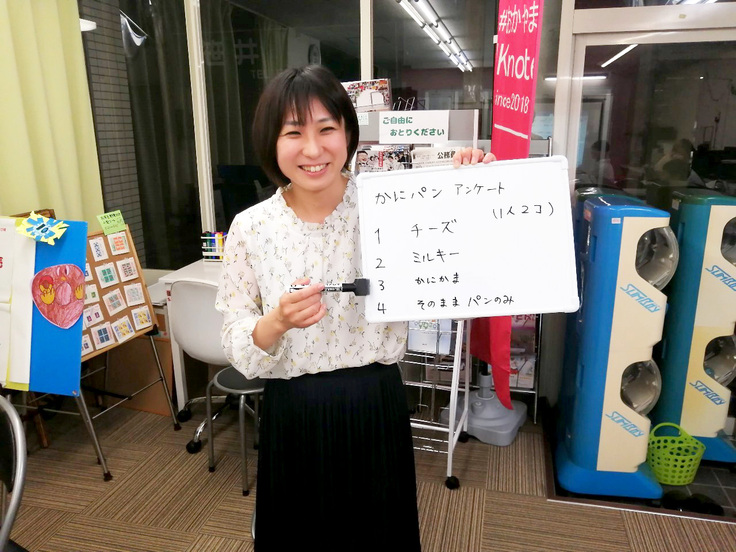 #おかやま
Knote
ince2018
ご自由に
おとりください
公務員
かにパン アンケート
(1人2コ)
1 チーズ
2 ミルキー
3 かにかま
4 そのまま パンのみ